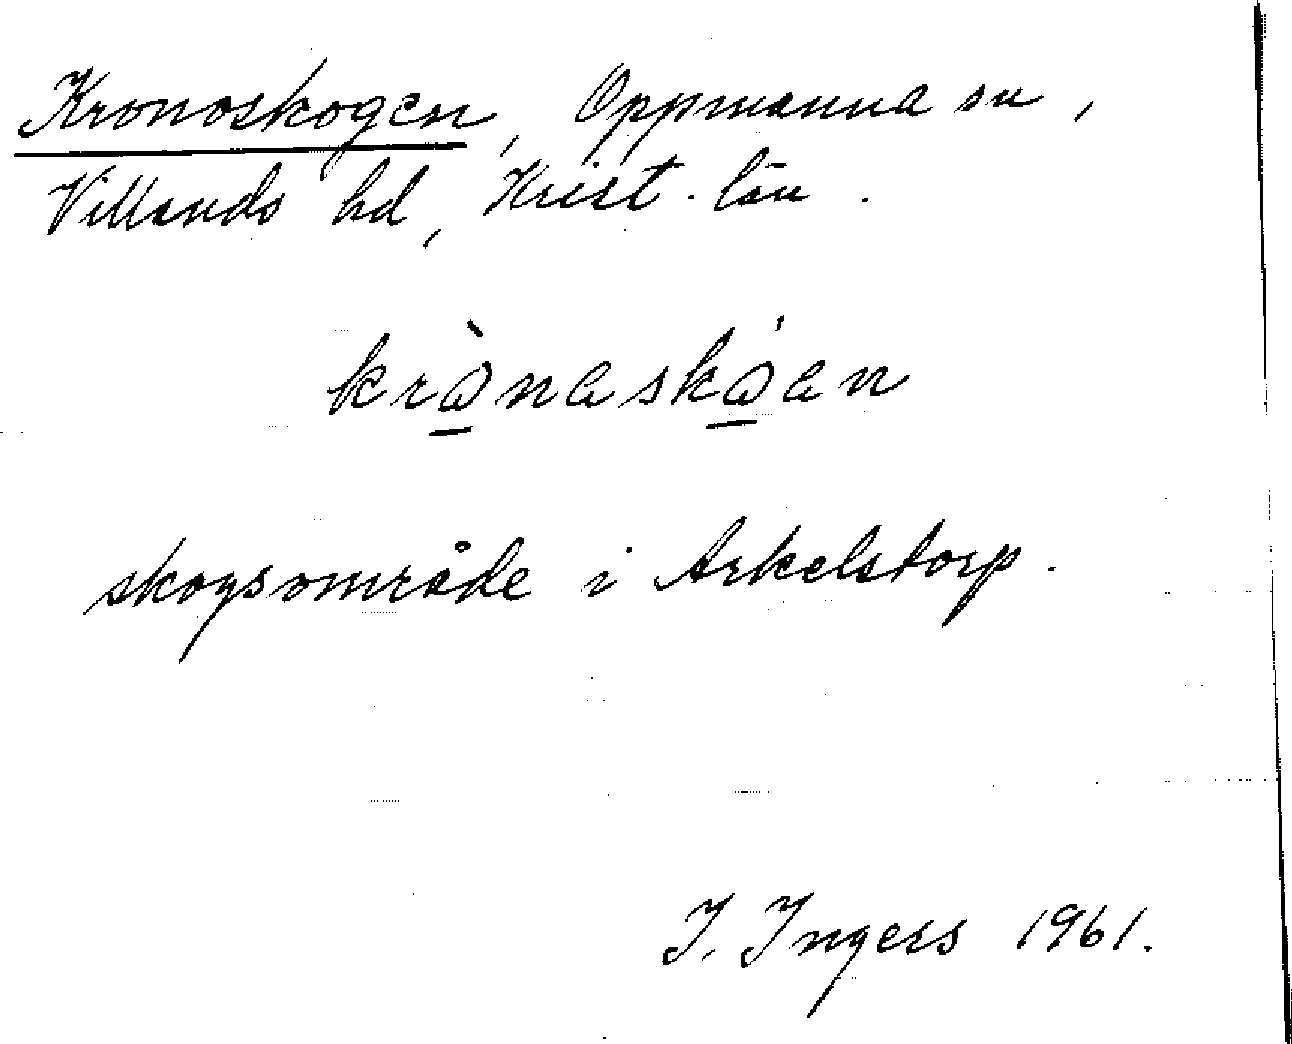 Kronoskogen, Oppmanna sn,
Villands hd, Krist. län.
krò̱naskó̱en
skogsområde i Arkelstorp.
I. Ingers 1961.